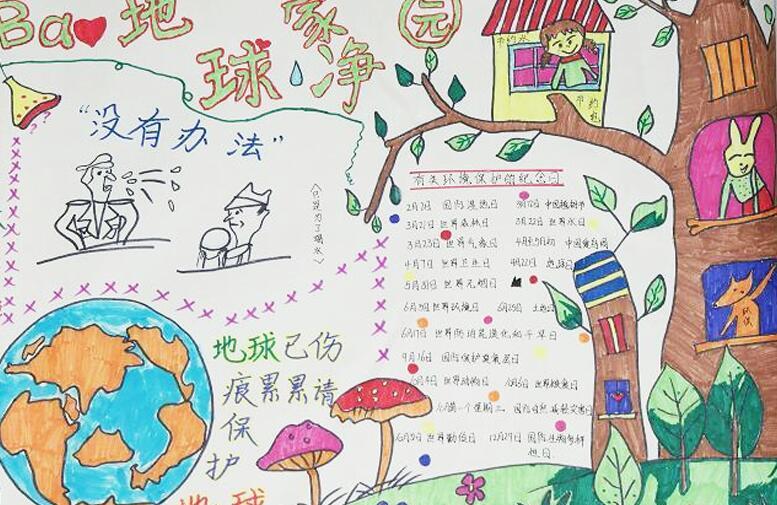 Ba 地球 家 净 园
节约水
节约
"没有办法"
(只是为了喝水)
有关环境保护的纪念日
2月2日 国际湿地日
3月12日 中国植树节
3月21日 世界森林日
3月22日 世界水日
3月23日 世界气象日
4月7日 世界卫生日
4月22日 地球日
5月31日 世界无烟日
6月5日 世界环境日
6月25日 土地日
6月17日 世界防治荒漠化和干旱日
9月16日 国际保护臭氧层日
世界动物日
世界粮食日
12月29日 国际生物多样
性日
环保
地球已伤
痕累累请
保
护
地球